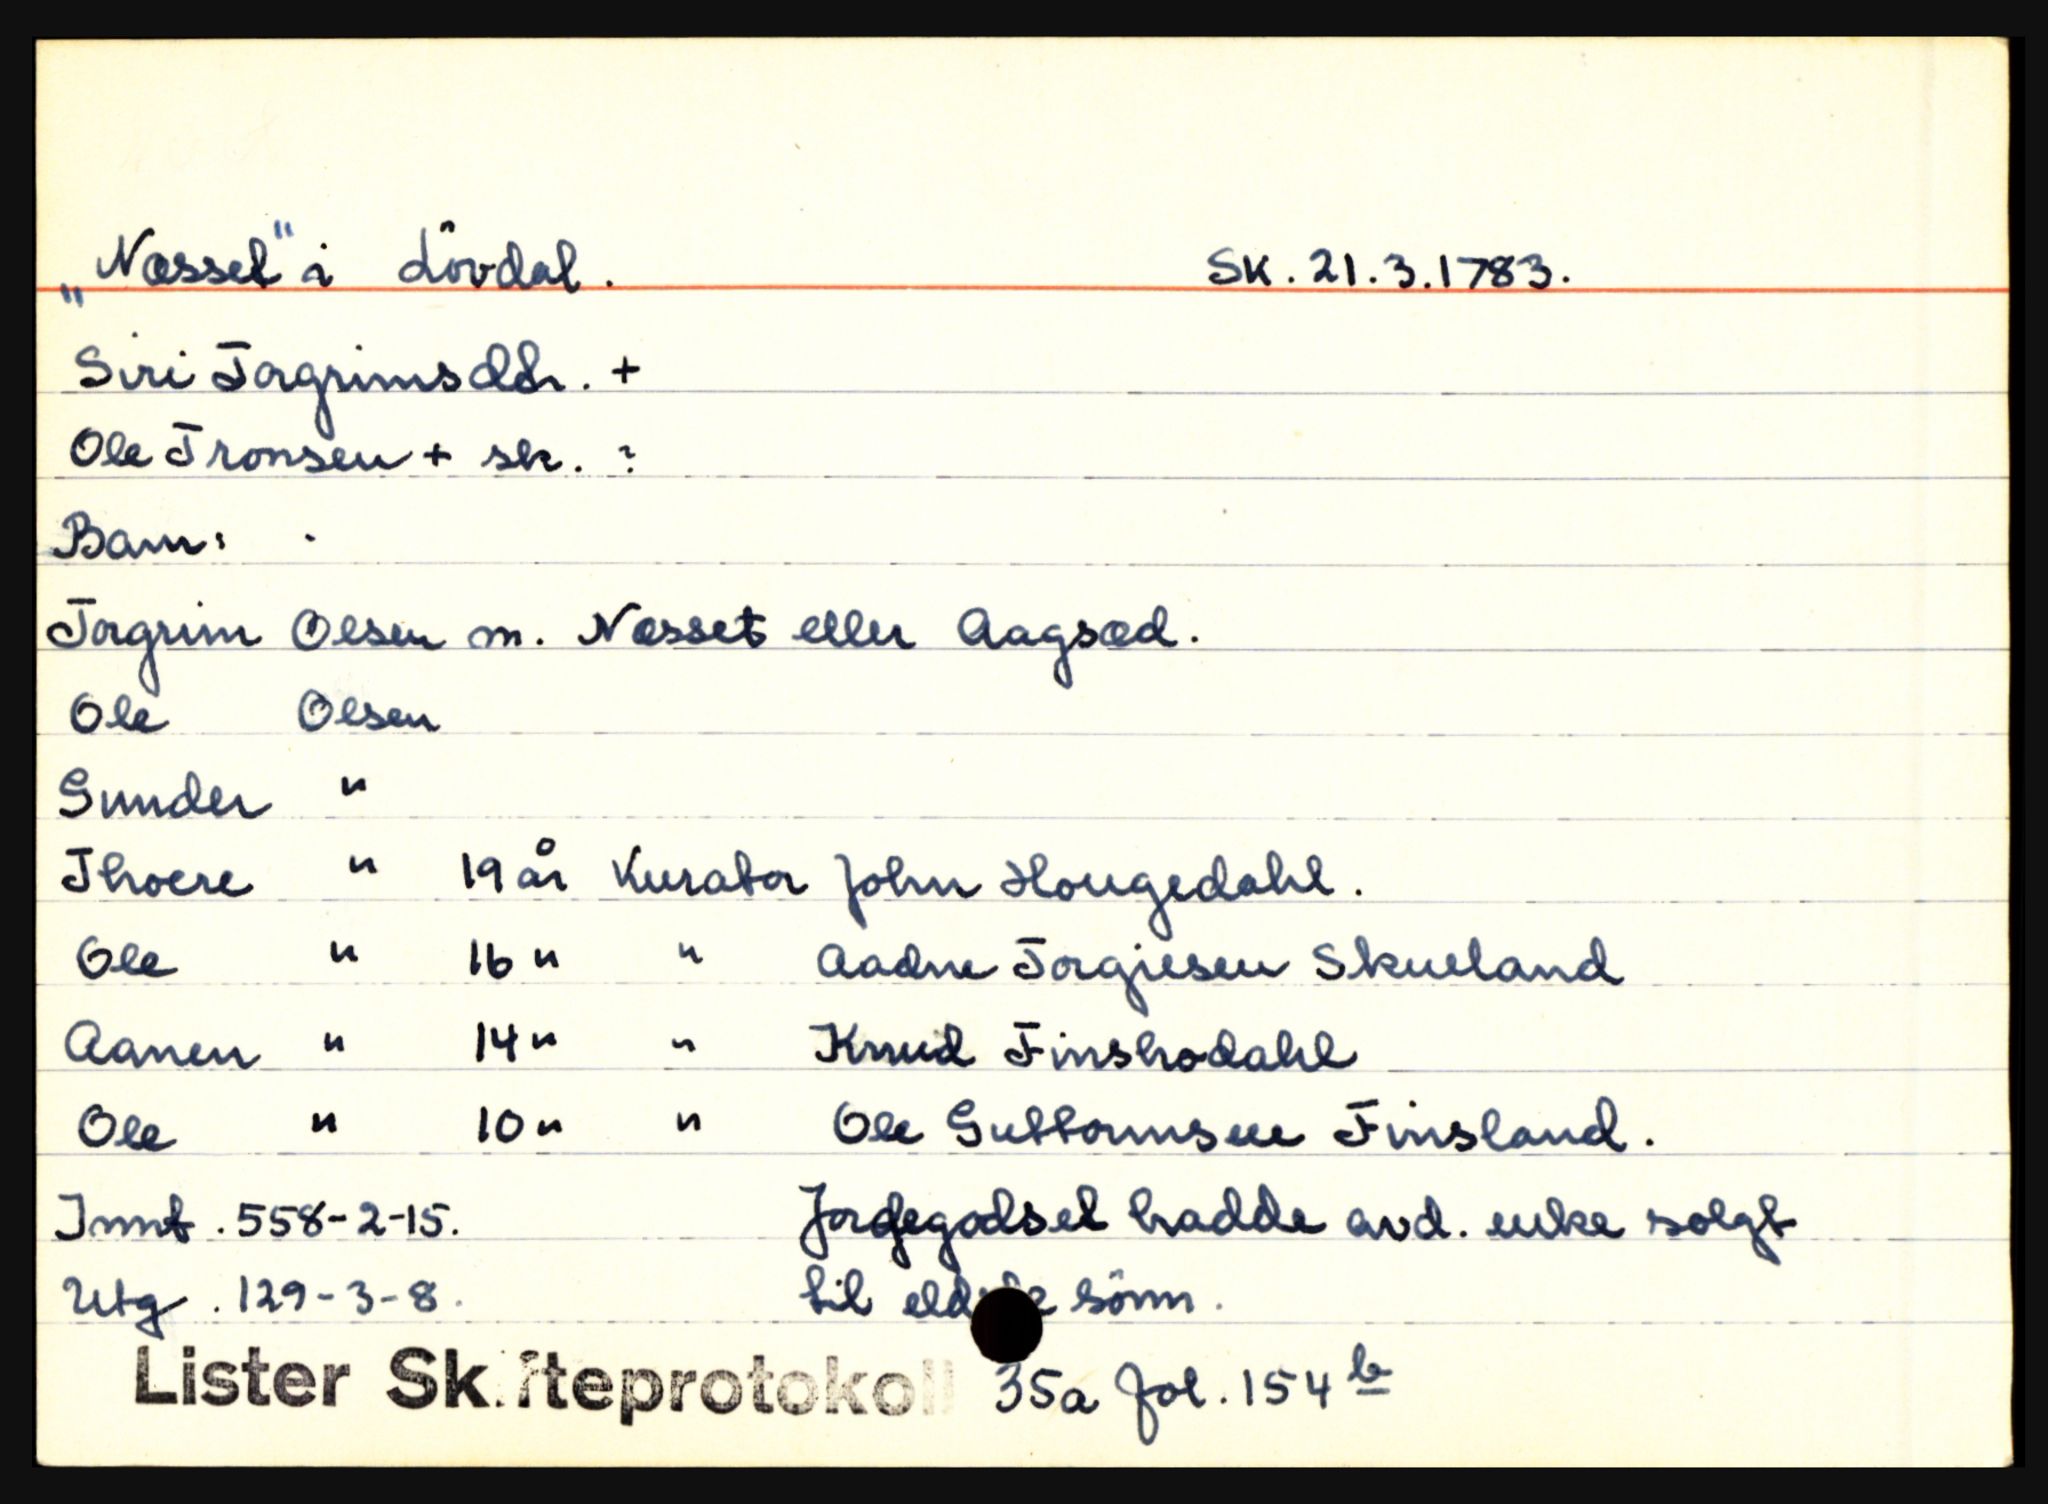 „Næsset" i Lövdal. Sk. 21.3.1783.
Siri Torgrimsdtr. +
Ole Tronsen + sk. ?
Barn:
Torgrim Olsen m. Næsset eller Aagsæd.
Ole Olsen
Gunder "
Thoere " 19 år Kurator John Hougedahl.
Ole " 16 " " Aadne Torgiesen Skueland
Aanen " 14 " " Knud Finshodahl
Ole " 10 " " Ole Guttormsen Finsland.
Innt. 558-2-15. Jordegodset hadde avd. enke solgt
Utg. 129-3-8. til eldste sönn.
Lister Skifteprotokoll 35a fol. 154 b